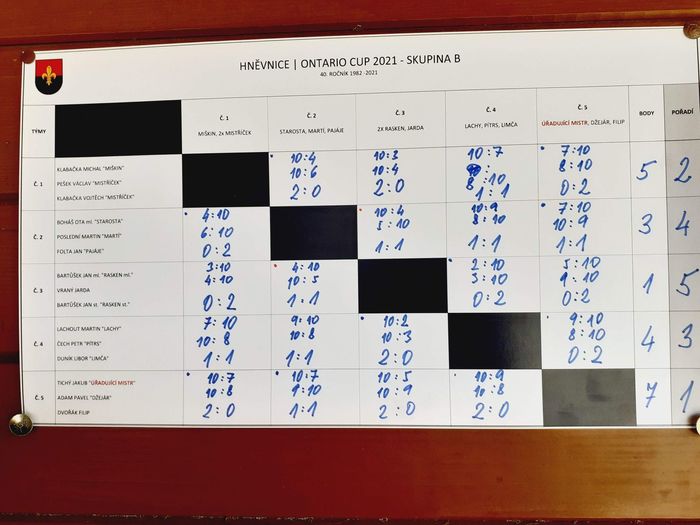 HNĚVNICE | ONTARIO CUP 2021 - SKUPINA B
40. ROČNÍK 1982 -2021
TÝMY
Č. 1
MIŠKIN, 2x MISTŘÍČEK
Č. 2
STAROSTA, MARTÍ, PAJÁJE
Č. 3
2X RASKEN, JARDA
Č. 4
LACHY, PÍTRS, LIMČA
Č. 5
ÚŘADUJÍCÍ MISTR, DŽEJÁR, FILIP
BODY
POŘADÍ
Č. 1
KLABAČKA MICHAL "MIŠKIN"
PEŠEK VÁCLAV "MISTŘÍČEK"
KLABAČKA VOJTĚCH "MISTŘÍČEK"
10:4
10:6
2:0
10:3
10:4
2:0
10:7
8:10
1:1
7:10
8:10
0:2
5
2
Č. 2
BOHÁŠ OTA ml. "STAROSTA"
POSLEDNÍ MARTIN "MARTÍ"
FOLTA JAN "PAJÁJE"
4:10
6:10
0:2
10:4
5:10
1:1
10:9
8:10
1:1
7:10
10:9
1:1
3
4
Č. 3
BARTŮŠEK JAN ml. "RASKEN ml."
VRANÝ JARDA
BARTŮŠEK JAN st. "RASKEN st."
3:10
4:10
0:2
4:10
10:5
1:1
2:10
3:10
0:2
5:10
9:10
0:2
1
5
Č. 4
LACHOUT MARTIN "LACHY"
ČECH PETR "PÍTRS"
DUNÍK LIBOR "LIMČA"
7:10
10:8
1:1
9:10
10:8
1:1
10:2
10:3
2:0
9:10
8:10
0:2
4
3
Č. 5
TICHÝ JAKUB "ÚŘADUJÍCÍ MISTR"
ADAM PAVEL "DŽEJÁR"
DVOŘÁK FILIP
10:7
10:8
2:0
10:7
9:10
1:1
10:5
10:9
2:0
10:9
10:8
2:0
7
1